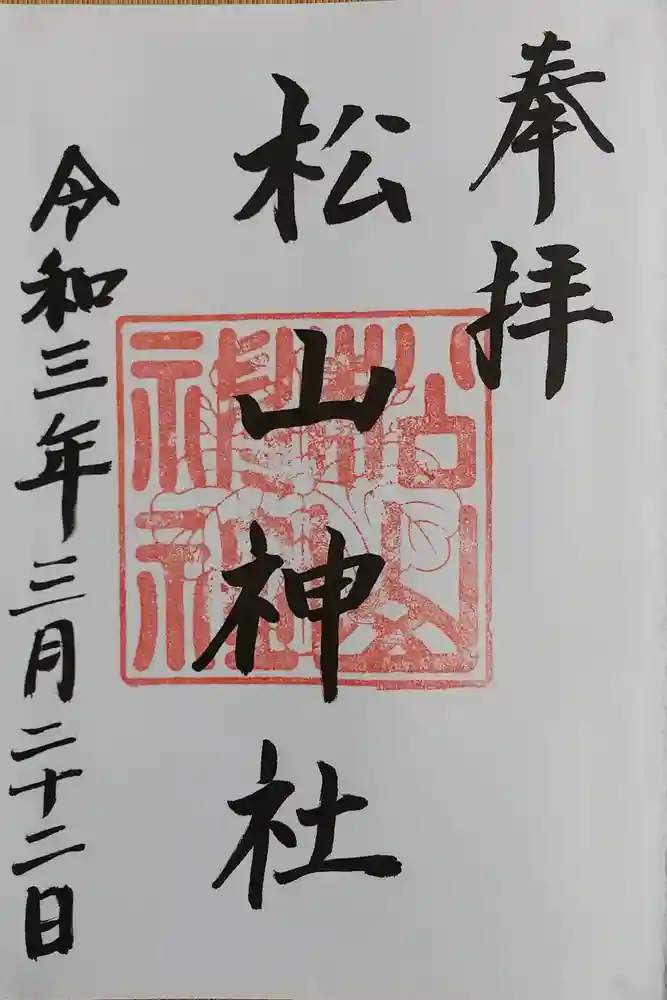 奉拝
松山神社
令和三年三月二十二日